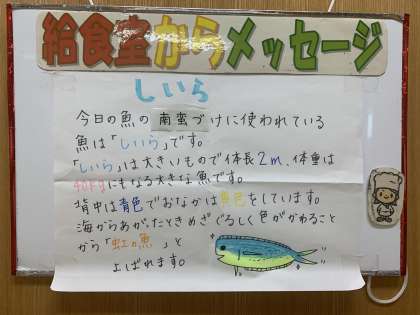 給食室からメッセージ
しいら
今日の魚の南蛮づけに使われている
魚は「しいら」です。
「しいら」は大きいもので体長2m、体重は
40kgにもなる大きな魚です。
背中は青色でおなかは黄色をしています。
海からあがったときめまぐるしく色がかわること
から「虹の魚」と
よばれます。